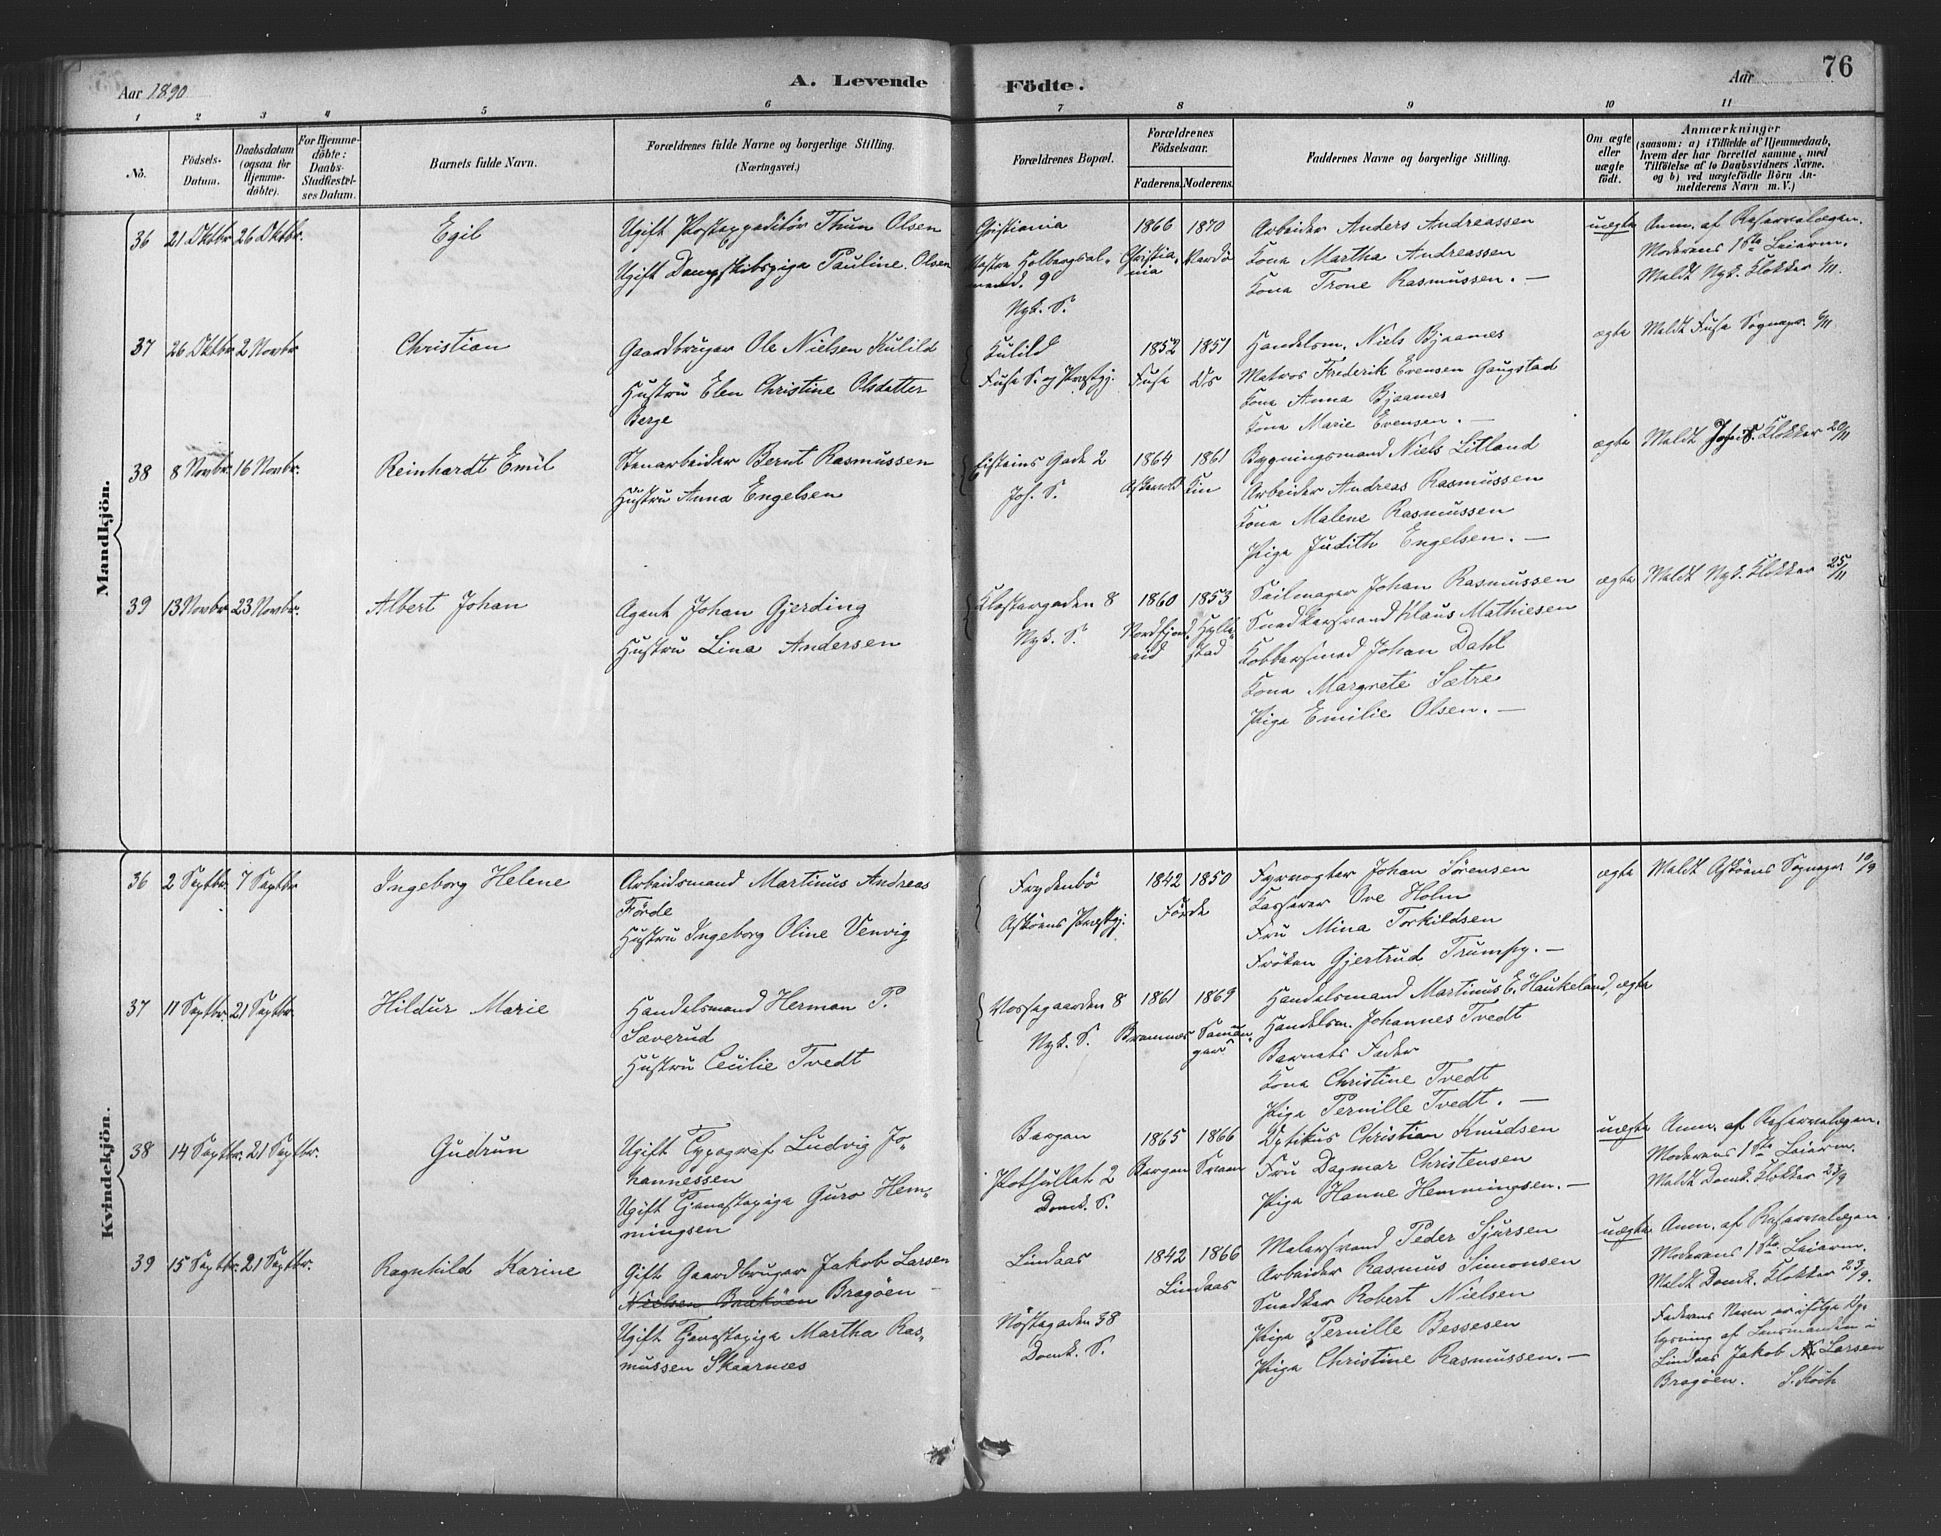 76
Aar 1890
A. Levende
Födte.
Aar
1 2 3 4 5 6 7 8 9 10 11
No.
Födsels-Datum.
Daabsdatum (ogsaa för Hjemmedöbte).
For Hjemmedöbte: Daabs-Stadfæstelses Datum.
Barnets fulde Navn.
Forældrenes fulde Navne og borgerlige Stilling.
(Næringsvei.)
Forældrenes Bopæl.
Forældrenes Födselsaar.
Faderens. Moderens.
Faddernes Navne og borgerlige Stilling.
Om ægte eller uægte födt.
Anmærkninger
(saasom: a) i Tilfælde af Hjemmedaab, hvem der har forrettet samme, med Tilföielse af to Daabsvidners Navne. og b) ved uægtefödte Börn Anmelderens Navn m. V.)
Mandkjön.
36 21 Oktbr. 26 Oktbr.
Egil
Ugift Postexpeditör Thun Olsen
Ugift Dampskibspige Pauline Olsen
Cristiania
Vestre Holbergsal-
mend. 9
Nyk. S.
1866 1870
Christia-
nia
Vardö
Arbeider Anders Andreassen
Kona Martha Andreassen
Kona Trone Rasmussen. —
uægte
Anm. af Reservelægen.
Moderens 1ste Leierm.
Meldt Nyk. Klokker 1/11.
37 26 Oktbr. 2 Novbr.
Christian
Gaardbruger Ole Nielsen Kulild
Hustru Elen Christine Olsdatter
Berge
Kulild
Fuse S. og Præstgj.
1852 1851
Fuse Ds
Handelsm. Niels Bjaanes
Matros Frederik Evensen Gaugstad
Kona Anna Bjaanes
Kona Marie Evensen. —
ægte
Meldt Fuse Sognepr. 6/11
38 8 Novbr. 16 Novbr.
Reinhardt Emil
Stenarbeider Bernt Rasmussen
Hustru Anna Engelsen
Eisteins Gade 2
Joh. S.
1864 1861
Askevold Kin
Bygningsmand Niels Litland
Arbeider Andreas Rasmussen
Kona Malene Rasmussen
Pige Judith Engelsen. —
ægte
Meldt Joh. S. Klokker 20/11
39 13 Novbr. 23 Novbr.
Albert Johan
Agent Johan Gjerding
Hustru Lina Andersen
Klostergaden 8
Nyk. S.
1860 1853
Nordfjord-
eid
Hylle-
stad
Seilmager Johan Rasmussen
Snedkersvend Klaus Mathiesen
Kobbersmed Johan Dahl
Kona Margrete Sætre
Pige Emilie Olsen. —
ægte
Meldt Nyk. Klokker 25/11
Kvindekjön.
36 2 Septbr. 7 Septbr
Ingeborg Helene
Arbeidsmand Martinus Andreas
Förde
Hustru Ingeborg Oline Venvig
Frydenbö
Asköens Præstgj.
1842 1850
Förde
Fyrvogter Johan Sörensen
Kasserer Ove Holm
Fru Mina Torkildsen
Fröken Gjertrud Trumpy. —
ægte
Meldt Asköens Sognepr 10/9
37 11 Septbr. 21 Septbr.
Hildur Marie
Handelsmand Herman P.
Sæverud
Hustru Cecilie Tvedt
Vossegaarden 8
Nyk. S.
1861 1869
Bremnes Saman-
ger
Handelsmand Martinus E. Haukeland,
Handelsm. Johannes Tvedt
Barnets Fader
Kona Christine Tvedt
Pige Pernille Tvedt. —
ægte
38 14 Septbr. 21 Septbr.
Gudrun
Ugift Typograf Ludvig Jo-
hannessen
Ugift Tjenestepige Guro Hem-
mingsen
Bergen
Pothullet 2
Domk. S.
1865 1866
Bergen Sveen
Optikus Christian Knudsen
Fru Dagmar Christensen
Pige Hanne Hemmingsen. —
uægte
Anm. af Reservelægen.
Moderens 1ste Leierm.
Meldt Domk. Klokker 23/9
39 15 Septbr. 21 Septbr.
Ragnhild Karine
Gift Gaardbruger Jakob Larsen
Nielsen Braköen Bragöen
Ugift Tjenestepige Martha Ras-
mussen Skaarnes
Lindaas
Nöstegaden 38
Domk. S.
1842 1866
Lindaas
Malersvend Peder Sjursen
Arbeider Rasmus Simonsen
Snedker Robert Nielsen
Pige Pernille Bessesen
Pige Christine Rasmussen. —
uægte
Anm. af Reservelægen.
Moderens 1ste Leierm.
Meldt Domk. Klokker 23/9.
Faderens Navn er ifölge Op-
lysning af Lensmanden i
Lindaas Jakob Larsen
Bragöen. S. Koch